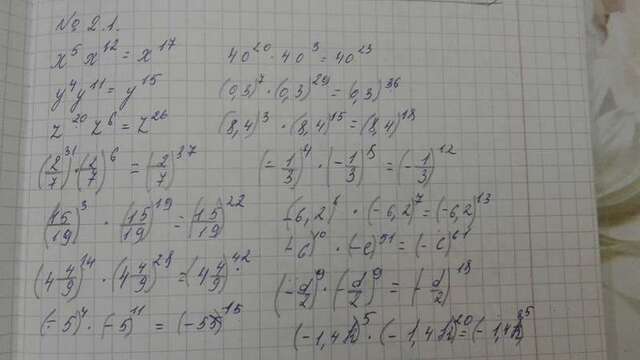 № 2.1.
x⁵ x¹² = x¹⁷
y⁴y¹¹ = y¹⁵
z²⁰ · z⁶ = z²⁶
(2/7)³¹ · (2/7)⁶ = (2/7)³⁷
(15/19)³ · (15/19)¹⁹ = (15/19)²²
(4 4/9)¹⁴ · (4 4/9)²⁸ = (4 4/9)⁴²
(-5)⁴ · (-5)¹¹ = (-5)¹⁵
40²⁰ · 40³ = 40²³
(0,3)⁷ · (0,3)²⁹ = (0,3)³⁶
(8,4)³ · (8,4)¹⁵ = (8,4)¹⁸
(-1/3)⁴ · (-1/3)⁸ = (-1/3)¹²
-6,2)⁶ · (-6,2)⁷ = (-6,2)¹³
-c)¹⁰ · (-c)⁵¹ = (-c)⁶¹
(-d/2)⁹ · (-d/2)⁹ = (-d/2)¹⁸
(-1,4h)⁵ · (-1,4h)²⁰ = (-1,4h)²⁵